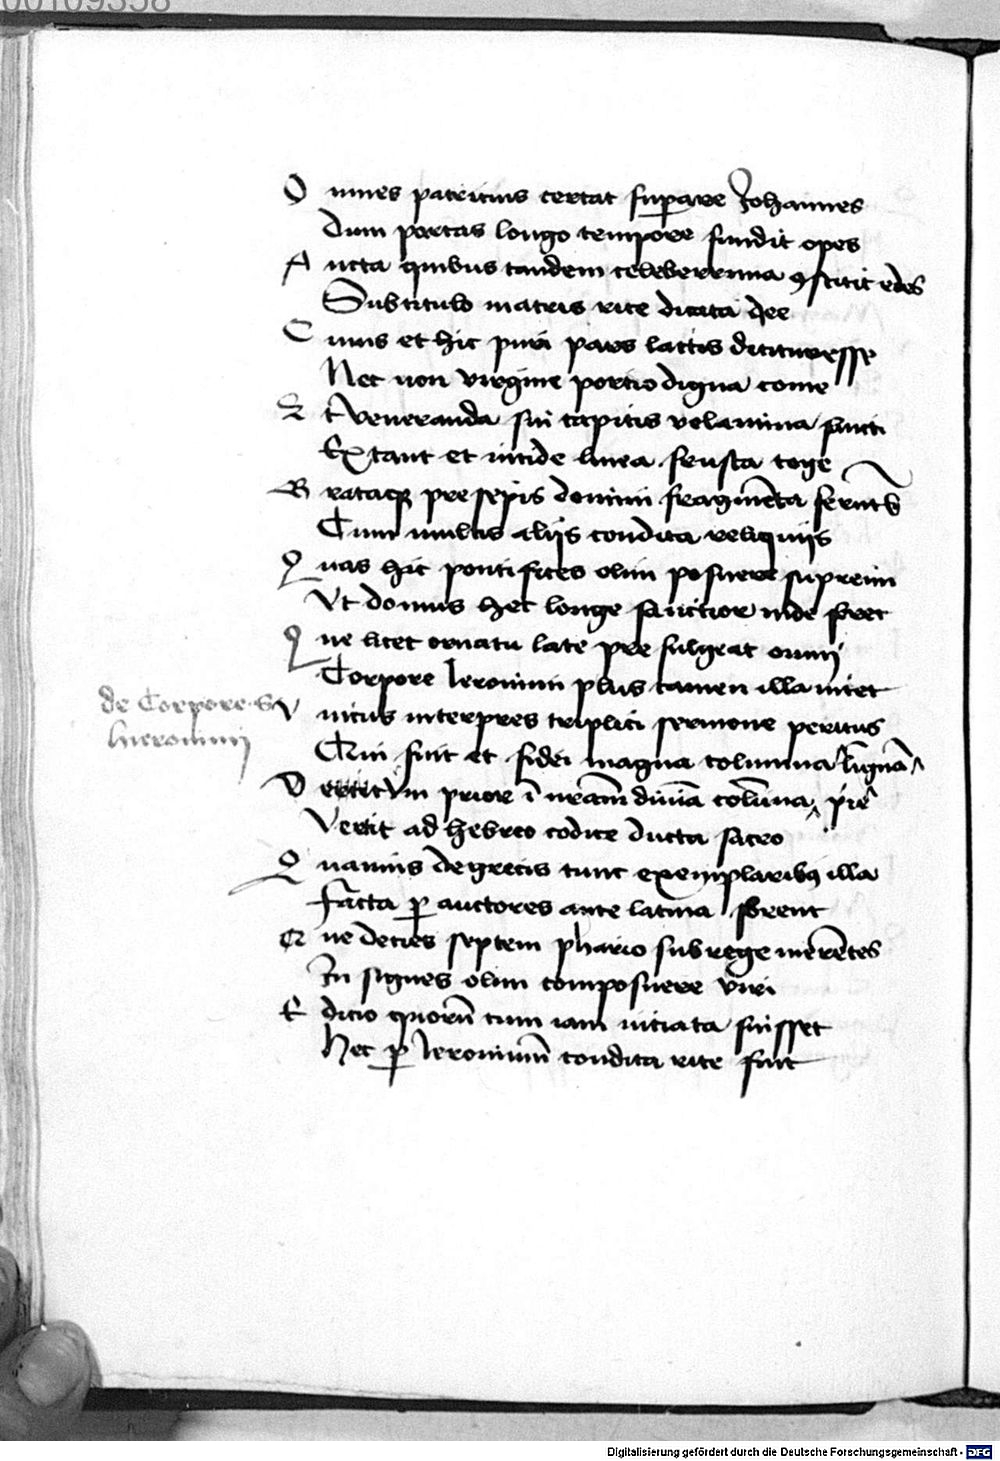 00109358
O mnes patricius certat superare Johannes
Dum portas longo tempore fundit opes
A ucta quibus tandem celeberrima ꝯstitit edes
Sub titulo matris rite dicata dee
C uius et hic puri pars lactis dicitur esse
Nec non virgine portio digna come
E t veneranda sui capitis velamina sancti
Extant et nitide linea frusta toge
G rataqꝫ presepis domini fragmẽta feruntᷣ
Cum multis aliis condita reliquiis
Q uas hic pontifices olim posuere supremi
Vt domus hec longe sanctior inde foret
Q ue licet ornatu late pre fulgeat omni
Corpore Ieronimi plus tamen illa nitet
de Corpore S.
hieronimi
V nicus interpres triplici sermone peritus
Qui fuit et fidei magna columna
prior ĩ nrãm columna
Vertit ab hebreo codice ducta sacro
Q uamuis de grecis tunc exemplaribꝰ illa
Facta ꝑ auctores ante latina forent
Q ue decies septem phario sub rege merẽtes
In signes olim composuere viri
E dicio quorũ cum iam viciata fuisset
Hec ꝑ Ieronimũ condita rite fuit
Digitalisierung gefördert durch die Deutsche Forschungsgemeinschaft - DFG